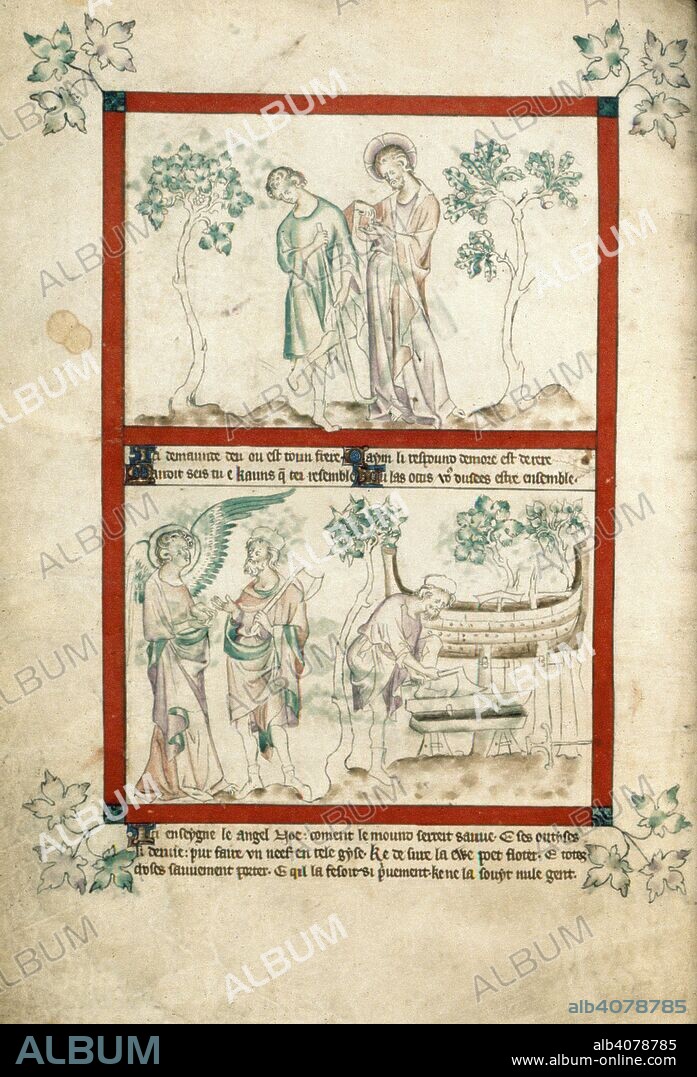 Ici demaunde deu ou est toun frere. Caym li respound demore est derere
Mauoit seis tu e kauns q̄ tei resemble Tu las ocis vo9 dusees estre ensemble.
Ici enseygne le angel Noe: coment le mound serreit sauue. E ses outyses
li deuie: pur faire vn neef en tele gyse. Ke de sure la ewe poet floter. E totes
choses sauuement porter. E qil la fesoit si p̄uement. ke ne la souyt nule gent.
alb4078785
ALBUM
alb4078785
www.album-online.com